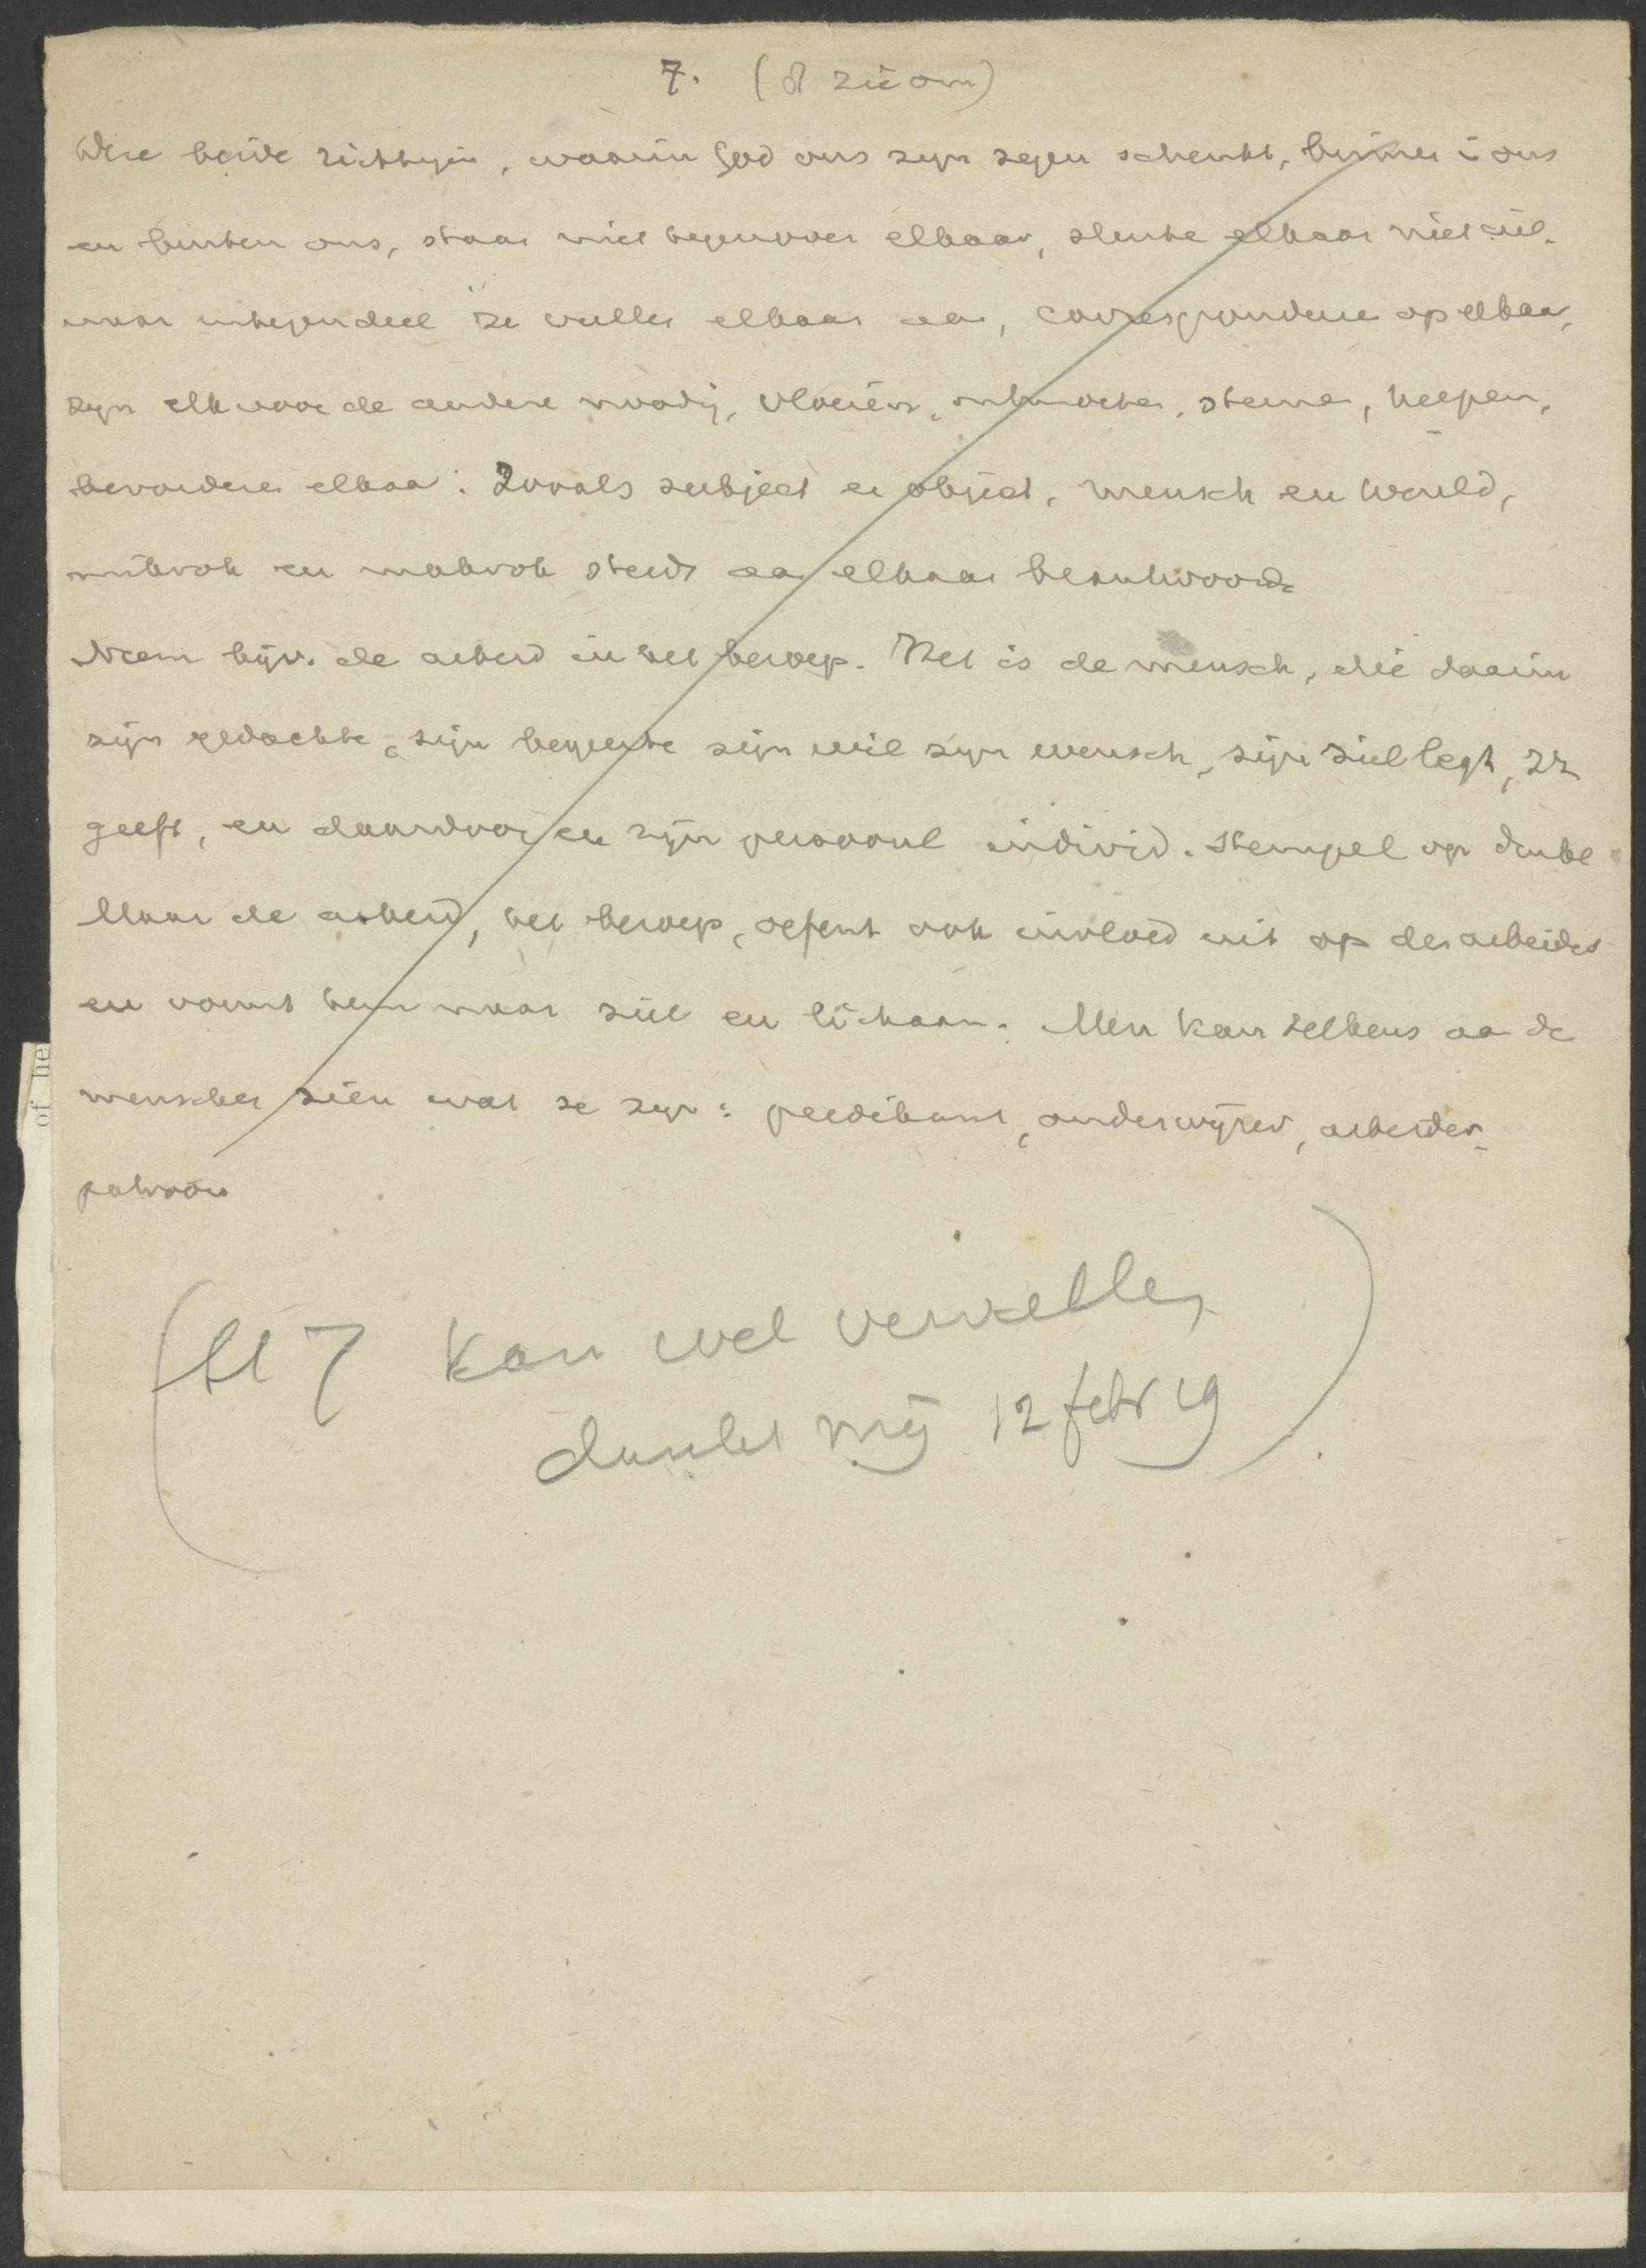 7. (8 zie om)
Deze beide richtingen, waarin God ons zyn zegen schenkt, binnen in ons
en buiten ons, staan niet tegenover elkaar, sluiten elkaar niet uit.
maar integendeel ze vullen elkaar aan, correspondeeren op elkaar,
zyn elk voor de andere noodig, vloeien, steunen, helpen,
bevorderen elkaar. Zooals subject en object, mensch en wereld,
mikrok en makrok steeds aan elkaar beantwoorden
Neem bijv. de arbeid in het beroep. Het is de mensch, die daarin
zijn gedachte, zijn begeerte zijn wil zyn wensch, zijn ziel legt,
geeft, en daardoor en zijn persoonl individ. stempel op drukt
Maar de arbeid, het beroep, oefent ook invloed uit op den arbeider
en vormt hem naar ziel en lichaam. Men kan telkens aan de
menschen zien wat ze zyn: predikant, onderwijzer, arbeider,
patroon
(bl 7 kan wel vervallen
dunkt mij 12 febr 19)
of he